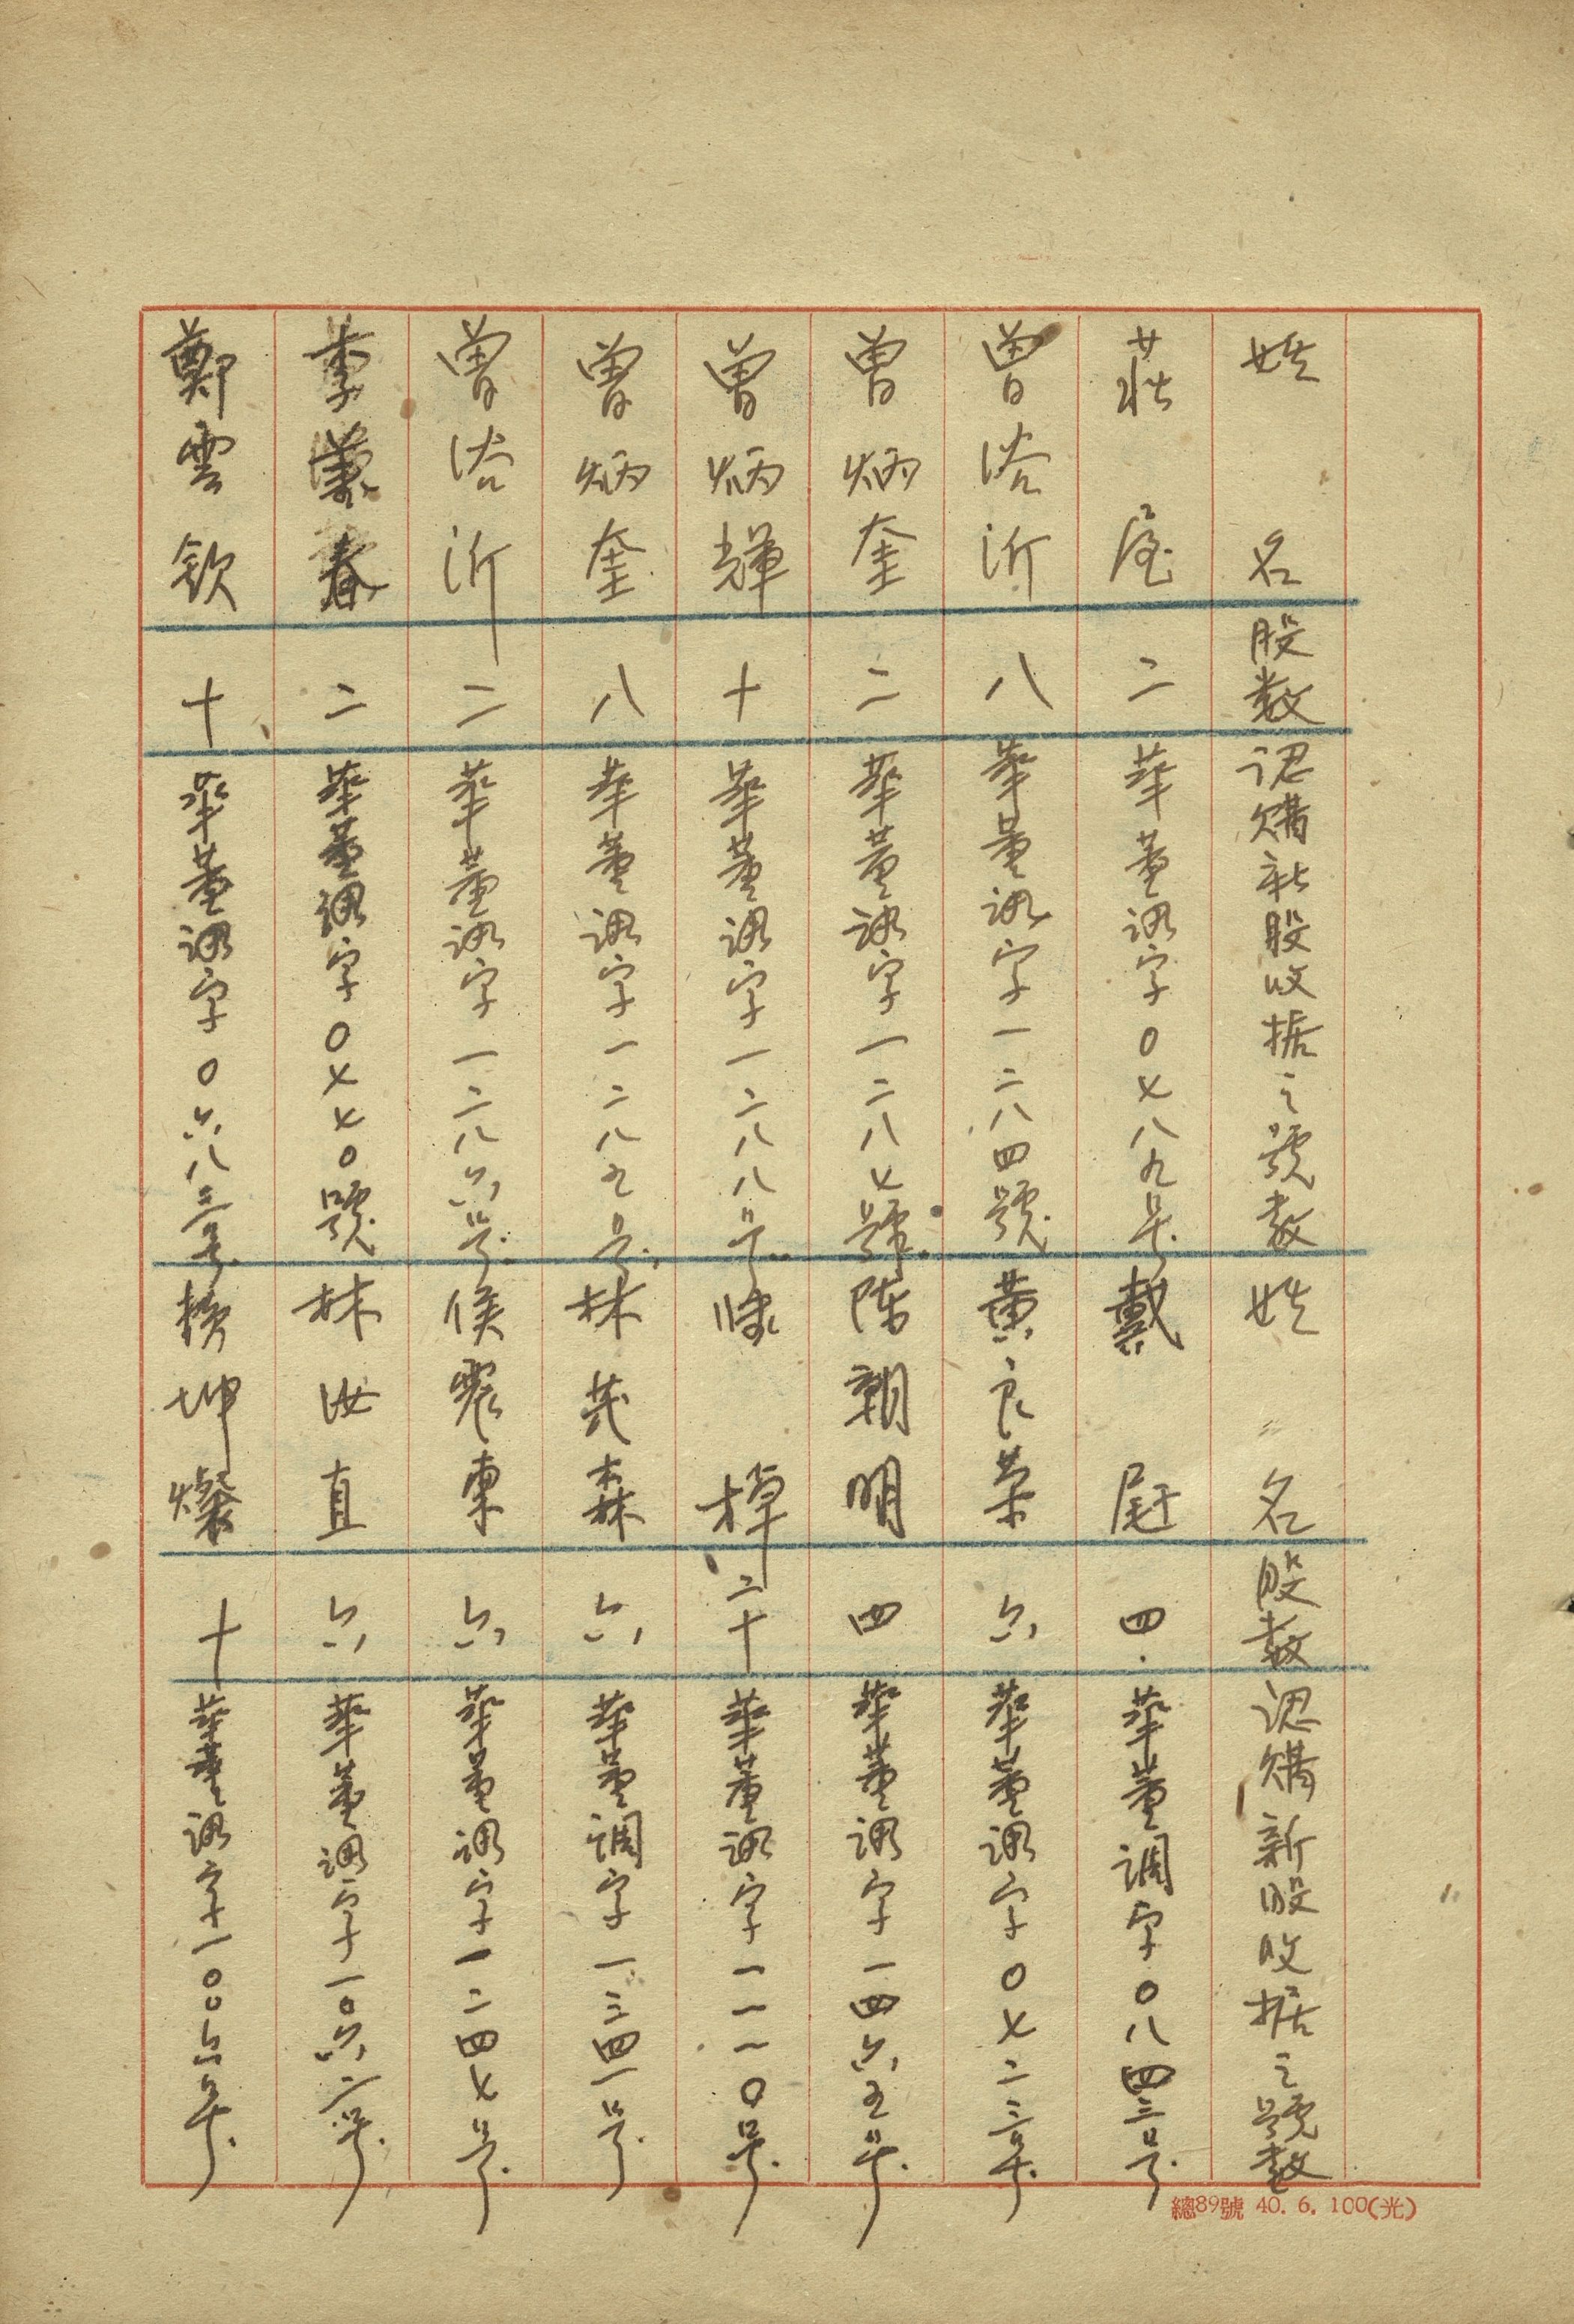 姓名 股数 认購新股收据之號数 姓名 股数 认購新股收据之號数
莊屋 二 華董調字0七八九号 戴尪 四 華董調字0八四三号
曾浴沂 八 華董調字一二八四號 黃良榮 六 華董調字0七二三号
曾炳奎 二 華董調字一二八七號 陈朝明 四 華董調字一四六五号
曾炳輝 十 華董調字一二八八号 二十 華董調字一一一0号
曾炳奎 八 華董調字一二八九号 林茂森 六 華董調字一三四一号
曾浴沂 二 華董調字一二八六号 侯霖東 六 華董調字一二四七号
李漢春 二 華董調字0七七0號 林汝直 六 華董調字一0六二号
鄭雲欽 十 華董調字0六八三号 坤燦 十 華董調字一00六号
總89號 40. 6. 100(光)